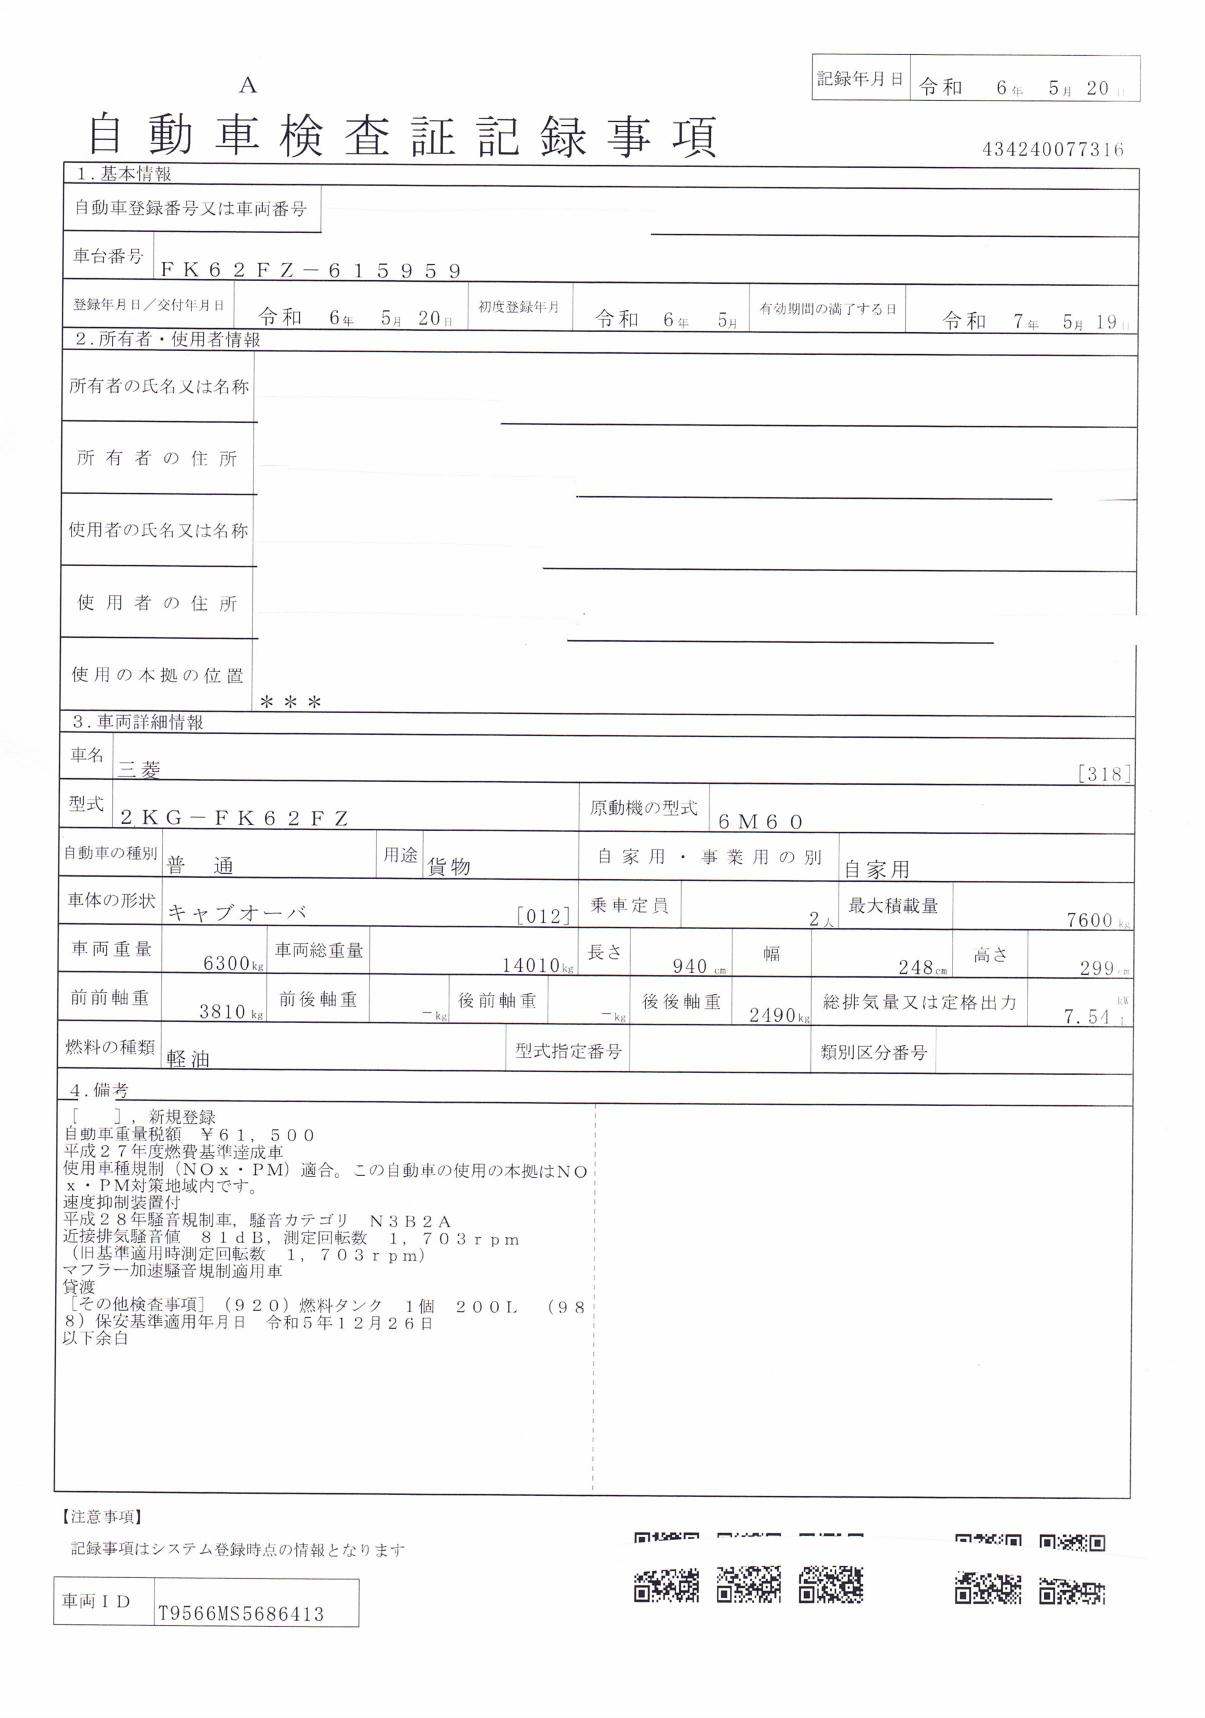 A
記録年月日 令和 6年 5月 20日
自動車検査証記録事項
434240077316
1.基本情報
自動車登録番号又は車両番号
車台番号 ＦＫ６２ＦＺ－６１５９５９
登録年月日／交付年月日 令和 6年 5月 20日 初度登録年月 令和 6年 5月 有効期間の満了する日 令和 7年 5月 19日
2.所有者・使用者情報
所有者の氏名又は名称
所有者の住所
使用者の氏名又は名称
使用者の住所
使用の本拠の位置 ＊＊＊
3.車両詳細情報
車名 三菱 [318]
型式 ２ＫＧ－ＦＫ６２ＦＺ 原動機の型式 ６Ｍ６０
自動車の種別 普通 用途 貨物 自家用・事業用の別 自家用
車体の形状 キャブオーバ [012] 乗車定員 2人 最大積載量 7600kg
車両重量 6300kg 車両総重量 14010kg 長さ 940cm 幅 248cm 高さ 299cm
前前軸重 3810kg 前後軸重 －kg 後前軸重 －kg 後後軸重 2490kg 総排気量又は定格出力 7.54 kW l
燃料の種類 軽油 型式指定番号 類別区分番号
4.備考
［　　］，新規登録
自動車重量税額　￥６１，５００
平成２７年度燃費基準達成車
使用車種規制（ＮＯｘ・ＰＭ）適合。この自動車の使用の本拠はＮＯ
ｘ・ＰＭ対策地域内です。
速度抑制装置付
平成２８年騒音規制車，騒音カテゴリ　Ｎ３Ｂ２Ａ
近接排気騒音値　８１ｄＢ，測定回転数　１，７０３ｒｐｍ
（旧基準適用時測定回転数　１，７０３ｒｐｍ）
マフラー加速騒音規制適用車
貸渡
［その他検査事項］（９２０）燃料タンク　１個　２００Ｌ　（９８
８）保安基準適用年月日　令和５年１２月２６日
以下余白
【注意事項】
記録事項はシステム登録時点の情報となります
車両ＩＤ T9566MS5686413